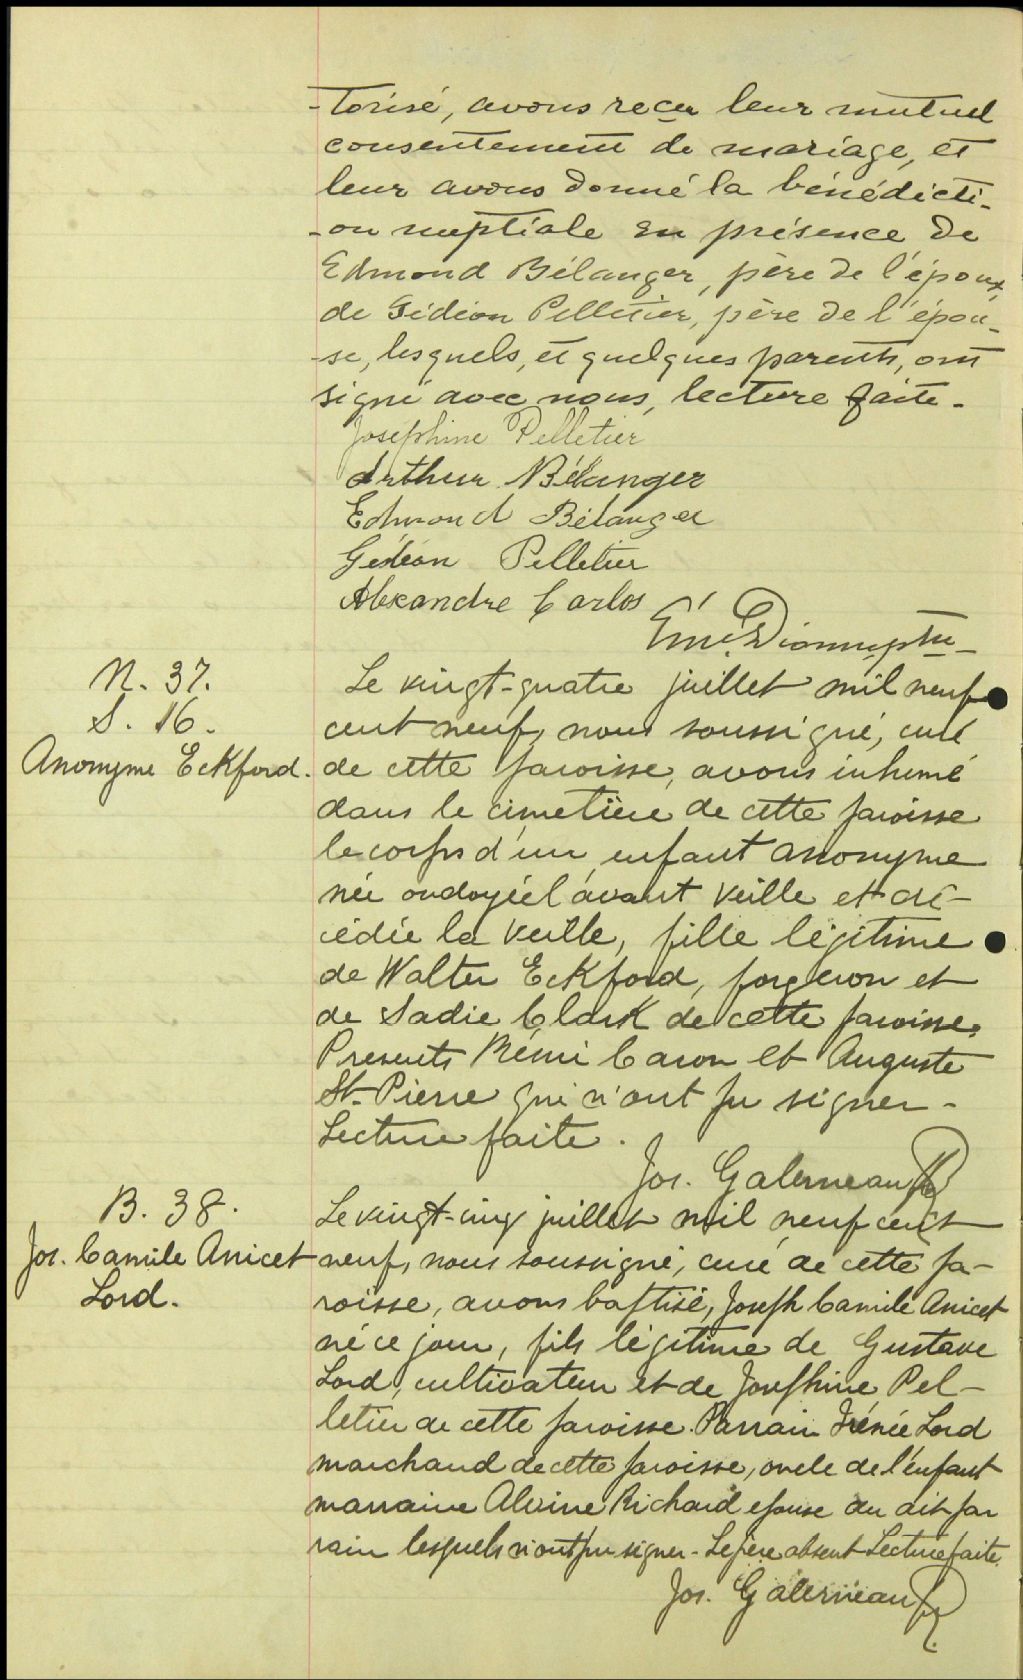 -torisé, avons reçu leur mutuel
consentement de mariage, et
leur avons donné la bénédicti-
-on nuptiale en présence de
Edmond Bélanger, père de l'époux,
de Gédéon Pelletier, père de l'épou-
-se, lesquels, et quelques parents, ont
signé avec nous, lecture faite.
Josephine Pelletier
Arthur Bélanger
Edmond Bélanger
Gédéon Pelletier
Alexandre Carlos
Dionne ptre
N. 37.
S. 16.
Anonyme Eckford.
Le vingt-quatre juillet mil neuf
cent neuf, nous soussigné, curé
de cette paroisse, avons inhumé
dans le cimetière de cette paroisse
le corps d'un enfant anonyme
née ondoyée l'avant veille et dé-
cédée la veille, fille légitime
de Walter Eckford, forgeron et
de Sadie Clark de cette paroisse.
Presents Rémi Caron et Auguste
St. Pierre qui n'ont pu signer-
Lecture faite.
Jos. Galerneau Ptr
B. 38.
Jos. Camile Anicet
Lord.
Le vingt-cinq juillet mil neuf cent
neuf, nous soussigné, curé de cette pa-
roisse, avons baptisé, Joseph Camile Anicet
né ce jour, fils légitime de Gustave
Lord, cultivateur et de Josephine Pel-
letier de cette paroisse. Parrain Irénée Lord
marchand de cette paroisse, oncle de l'enfant
marraine Alvine Richard epouse du dit par
rain lesquels n'ont pu signer- Le père absent Lecture faite.
Jos. Galerneau Ptr